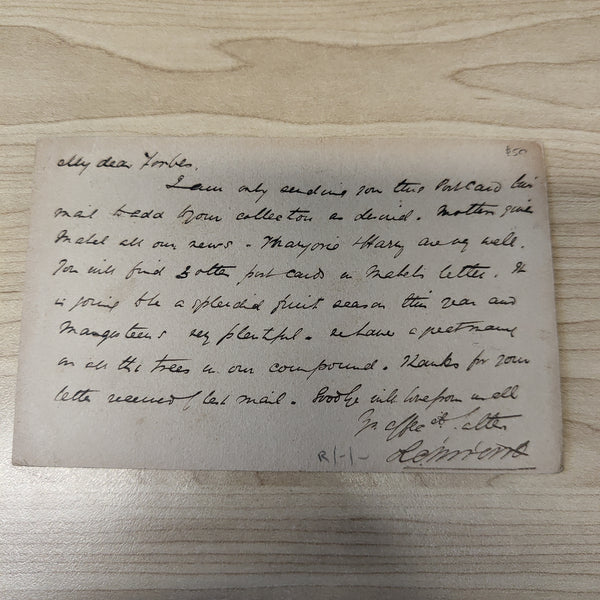 $50
My dear Forbes,
I am only sending you this Post Card this
mail to add to your collection as desired. Mother gives
Mabel all our news. Marjorie & Harry are vy well.
You will find 3 other post cards in Mabel's letter. It
is going to be a splendid fruit season this year and
Mangosteens very plentiful. We have a great many
on all the trees in our compound. Thanks for your
letter received by last mail. Goodbye with love from us all
Yr affect. father
R/-/-